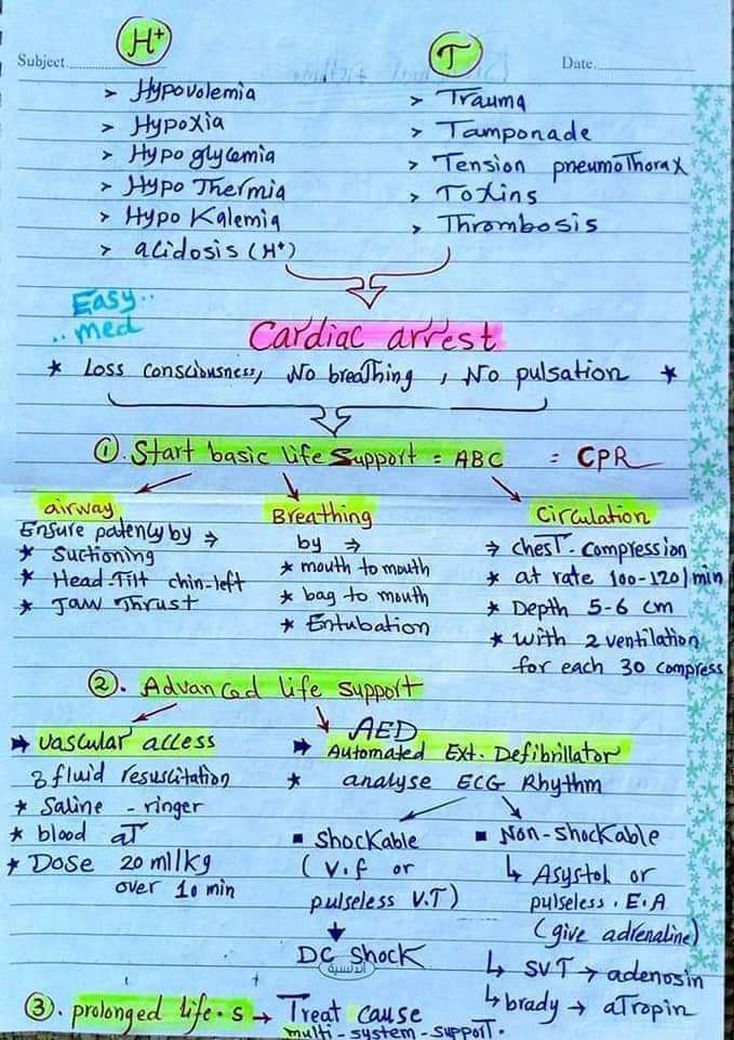 Subject
H+
T
Date
> Hypovolemia
> Hypoxia
> Hypoglycemia
> Hypo Thermia
> Hypo Kalemia
> acidosis (H+)
> Trauma
> Tamponade
> Tension pneumothorax
> Toxins
> Thrombosis
Easy..
..med
Cardiac arrest
* Loss Consciousness, No breathing, No pulsation *
①. Start basic life support = ABC = CPR
airway
Ensure patency by ⇒
* Suctioning
* Head-Tilt chin-left
* Jaw Thrust
Breathing
by ⇒
* mouth to mouth
* bag to mouth
* Entubation
Circulation
⇒ chest-compression
* at rate 100-120/min
* Depth 5-6 cm
* with 2 ventilation
for each 30 compress
②. Advanced life support
➡ vascular access
& fluid resuscitation
* Saline - ringer
* blood aT
* Dose 20 ml/kg
over 10 min
AED
➡ Automated Ext. Defibrillator
* analyse ECG Rhythm
▪ Shockable
(V.f or
pulseless V.T)
DC Shock
▪ Non-shockable
↳ Asystol or
pulseless.E.A
(give adrenaline)
↳ SVT → adenosin
↳ brady → aTropin
③. prolonged life.s → Treat cause
multi-system-support.